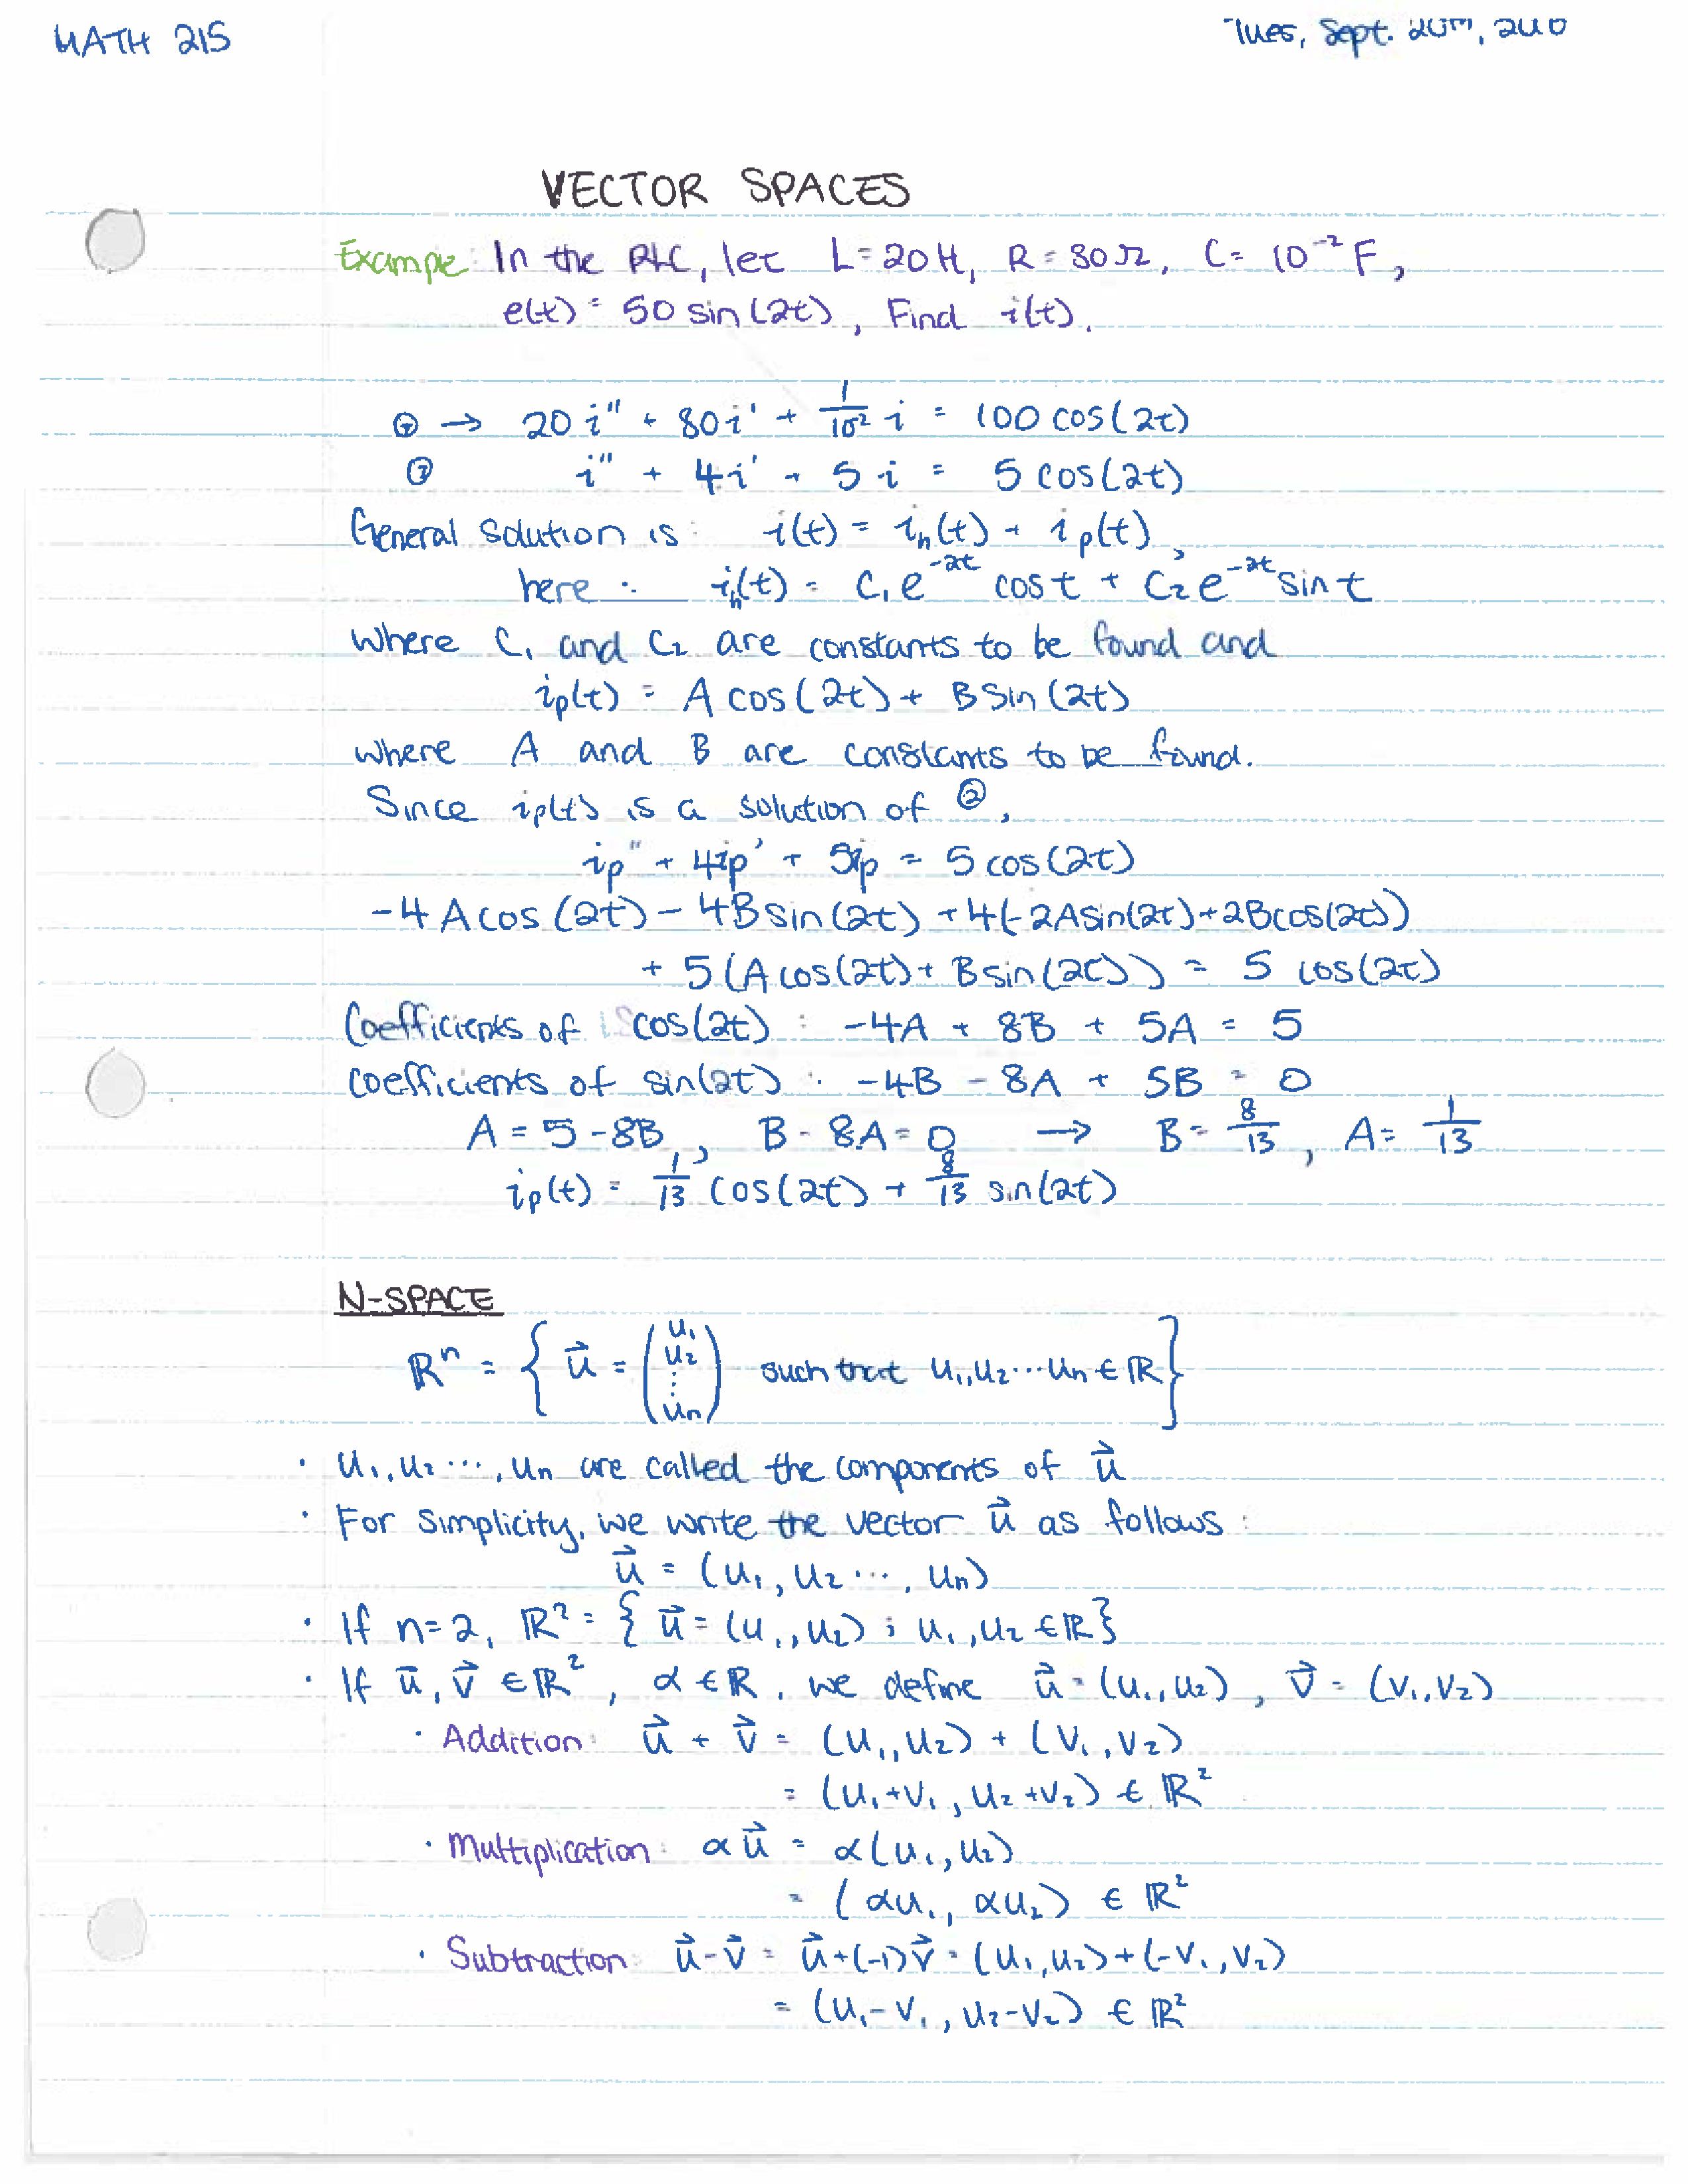 MATH 215
Tues, Sept. 20th,
VECTOR SPACES
Example: In the RLC, let L = 20H, R = 80Ω, C = 10⁻² F,
e(t) = 50 sin(2t), Find i(t).
→ 20 i'' + 80 i' + 1/10⁻² i = 100 cos(2t)
i'' + 4i' + 5i = 5 cos(2t)
General solution is: i(t) = iₕ(t) + iₚ(t),
here: iₕ(t) = C₁e⁻²ᵗ cos t + C₂e⁻²ᵗ sin t
where C₁ and C₂ are constants to be found and
iₚ(t) = A cos(2t) + B sin(2t)
where A and B are constants to be found.
Since iₚ(t) is a solution of ②,
iₚ'' + 4iₚ' + 5iₚ = 5 cos(2t)
-4A cos(2t) - 4B sin(2t) + 4(-2A sin(2t) + 2B cos(2t))
+ 5(A cos(2t) + B sin(2t)) = 5 cos(2t)
Coefficients of cos(2t): -4A + 8B + 5A = 5
coefficients of sin(2t): -4B - 8A + 5B = 0
A = 5 - 8B, B - 8A = 0 → B = 8/13, A = 1/13
iₚ(t) = 1/13 cos(2t) + 8/13 sin(2t)
N-SPACE
ℝⁿ = { u⃗ = (u₁ u₂ ⋮ uₙ) such that u₁, u₂ ... uₙ ∈ ℝ }
· u₁, u₂ ..., uₙ are called the components of u⃗
· For simplicity, we write the vector u⃗ as follows:
u⃗ = (u₁, u₂ ..., uₙ)
· If n = 2, ℝ² = { u⃗ = (u₁, u₂) ; u₁, u₂ ∈ ℝ }
· If u⃗, v⃗ ∈ ℝ², α ∈ ℝ, we define u⃗ = (u₁, u₂), v⃗ = (v₁, v₂)
· Addition: u⃗ + v⃗ = (u₁, u₂) + (v₁, v₂)
= (u₁+v₁, u₂+v₂) ∈ ℝ²
· Multiplication: αu⃗ = α(u₁, u₂)
= (αu₁, αu₂) ∈ ℝ²
· Subtraction: u⃗ - v⃗ = u⃗ + (-1)v⃗ = (u₁, u₂) + (-v₁, v₂)
= (u₁ - v₁, u₂ - v₂) ∈ ℝ²